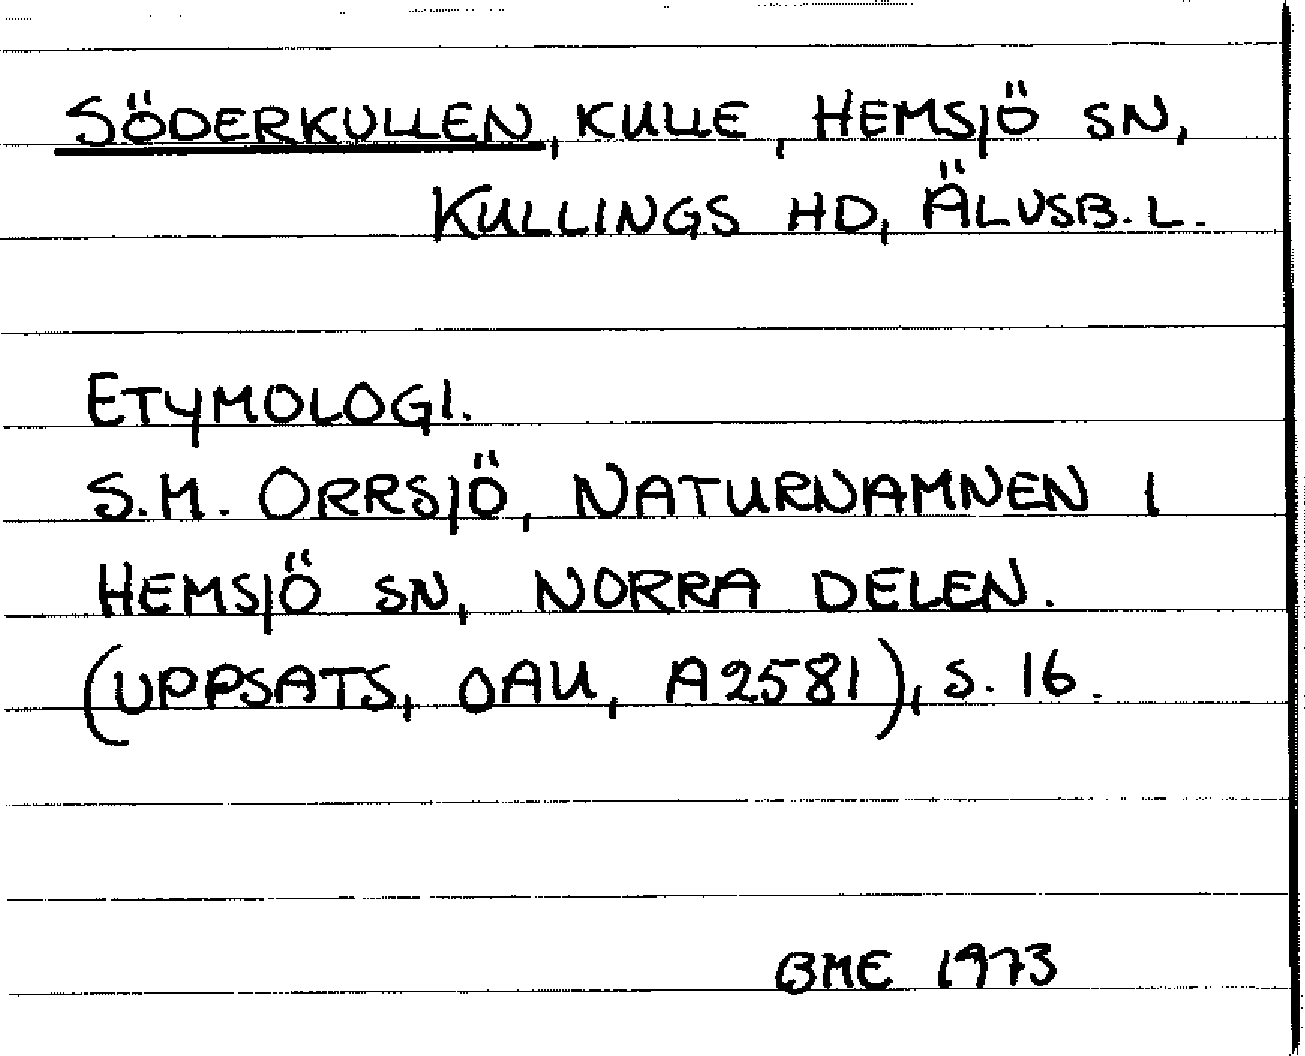 SÖDERKULLEN, KULLE, HEMSJÖ SN,
KULLINGS HD, ÄLVSB. L.
ETYMOLOGI.
S.M. ORRSJÖ, NATURNAMNEN I
HEMSJÖ SN, NORRA DELEN.
(UPPSATS, OAU, A2581), S. 16.
BME 1973